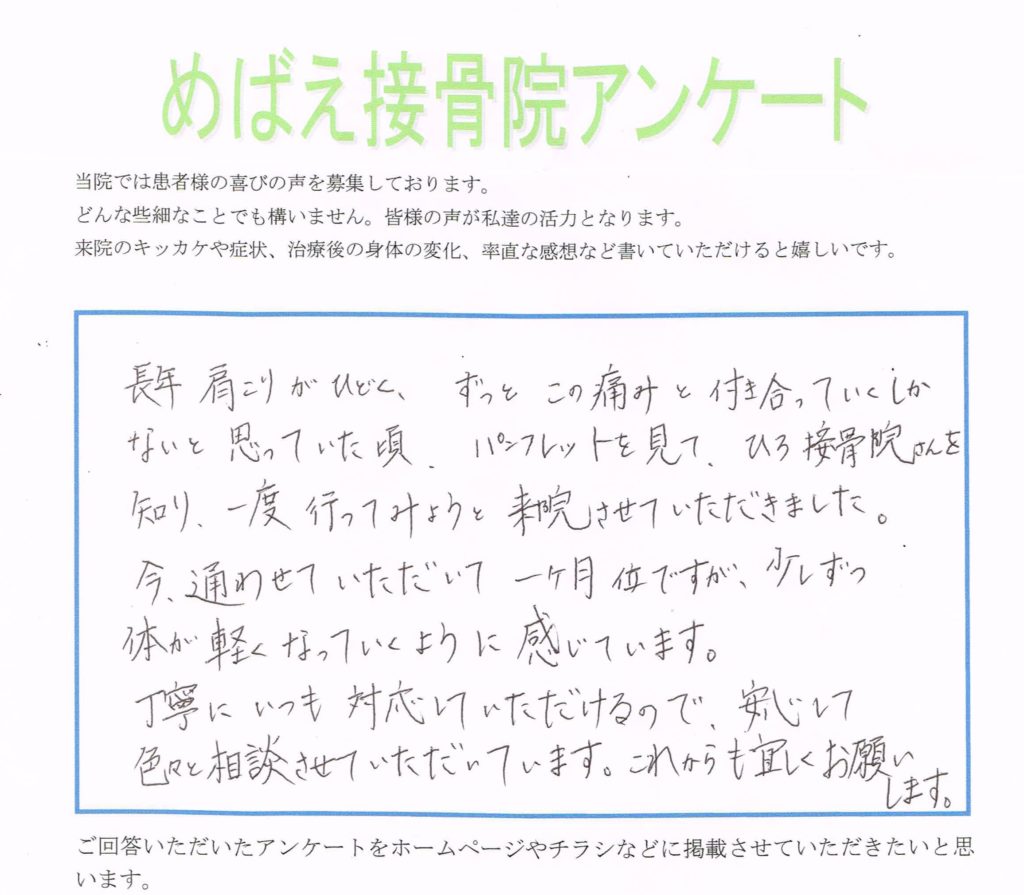 めばえ接骨院アンケート
当院では患者様の喜びの声を募集しております。
どんな些細なことでも構いません。皆様の声が私達の活力となります。
来院のキッカケや症状、治療後の身体の変化、率直な感想など書いていただけると嬉しいです。
長年 肩こりがひどく、ずっと この痛みと付き合っていくしか
ないと思っていた頃、パンフレットを見て、ひろ接骨院さんを
知り、一度行ってみようと来院させていただきました。
今、通わせていただいて 一ケ月位ですが、少しずつ
体が軽くなっていくように感じています。
丁寧にいつも対応していただけるので、安心して
色々と相談させていただいています。これからも宜しくお願い
します。
ご回答いただいたアンケートをホームページやチラシなどに掲載させていただきたいと思
います。